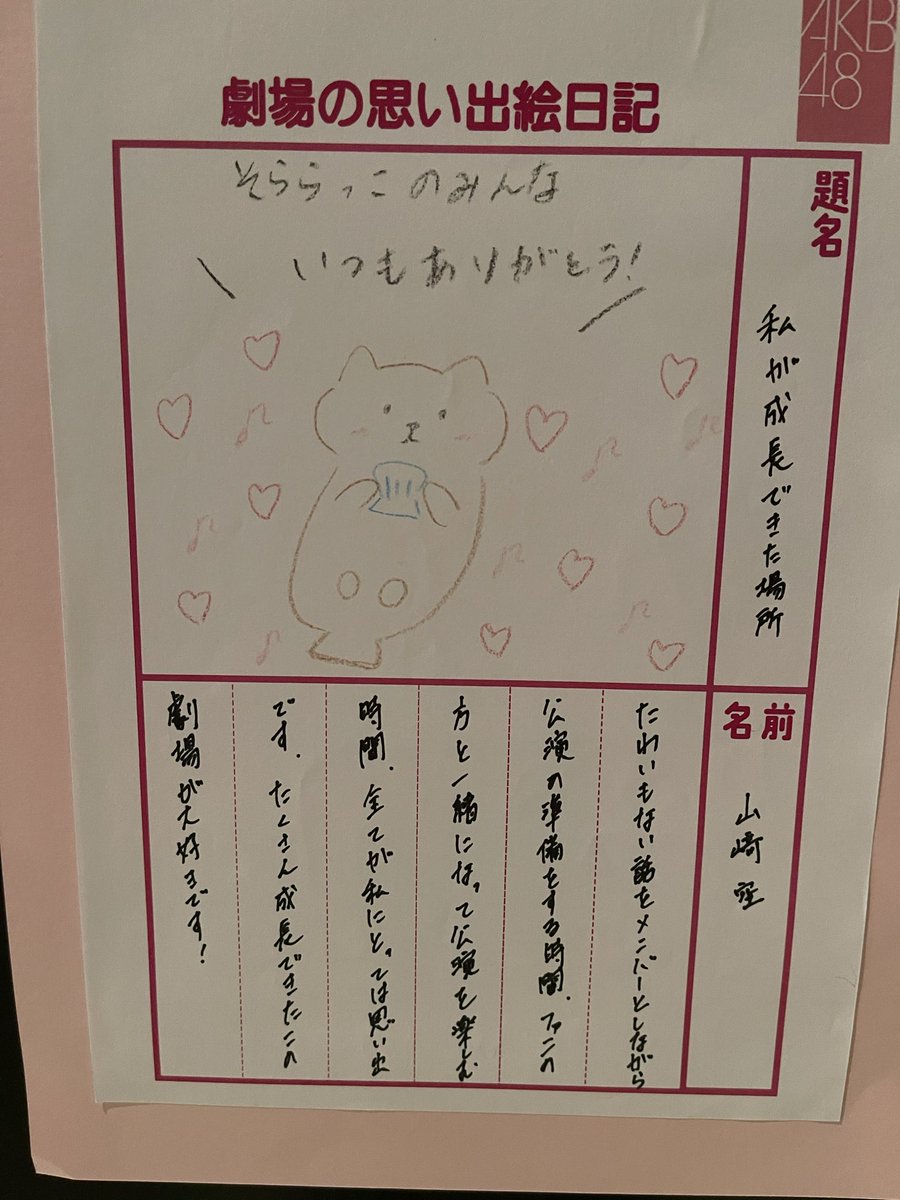 AKB
48
劇場の思い出絵日記
題名
私が成長できた場所
そららっこのみんな
いつもありがとう!
名前
山﨑空
たわいもない話をメンバーとしながら
公演の準備をする時間、ファンの
方と一緒になって公演を楽しむ
時間、全てが私にとっては思い出
です、たくさん成長できたこの
劇場が大好きです!